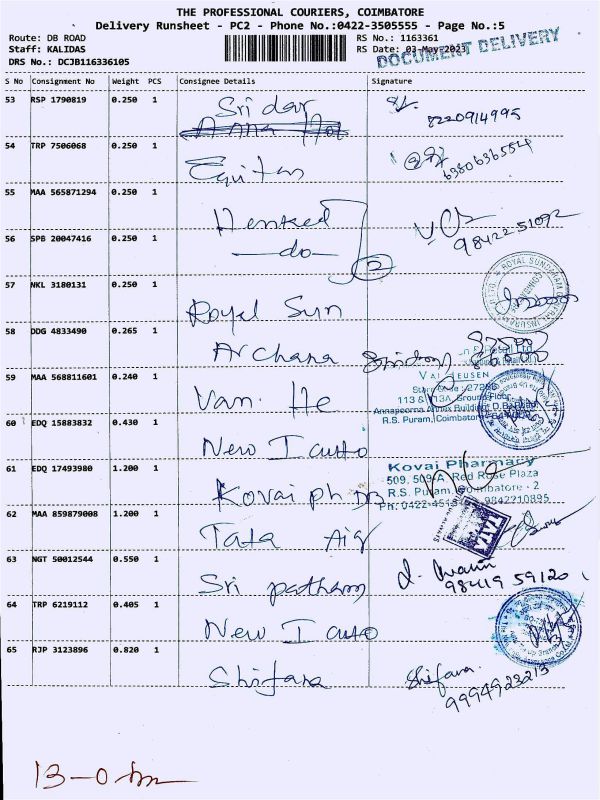 THE PROFESSIONAL COURIERS, COIMBATORE
Delivery Runsheet - PC2 - Phone No.:0422-3505555 - Page No.:5
Route: DB ROAD RS No.: 1163361
Staff: KALIDAS RS Date: 03-May-2023
DRS No.: DCJB116336105
DOCUMENT DELIVERY
S No Consignment No Weight PCS Consignee Details Signature
53 RSP 1790819 0.250 1 Sridar
8220914995
54 TRP 7506068 0.250 1 Equitas
6380636554
55 MAA 565871294 0.250 1 Henked
98422 51092
56 SPB 20047416 0.250 1 -do- 2
57 NKL 3180131 0.250 1 Royal Sun
ROYAL SUNDARAM
58 DDG 4833490 0.265 1 Archana
59 MAA 568811601 0.240 1 Van. He
VAN HEUSEN
113 & 113A, Ground Floor,
Annapoorna Annex Building, D.B. Road,
R.S. Puram, Coimbatore
60 EDQ 15883832 0.430 1 New I cutto
61 EDQ 17493980 1.200 1 Kovai ph DB
Kovai Pharmacy
509, 509/A, Red Rose Plaza
R.S. Puram, Coimbatore - 2
Ph: 0422-4518 9842210895
62 MAA 859879008 1.200 1 Tata Aig
TATA
63 NGT 50012544 0.550 1 Sri patham
98419 59120
64 TRP 6219112 0.405 1 New I cutto
65 RJP 3123896 0.820 1 Shifara
Shifara.
9994923213